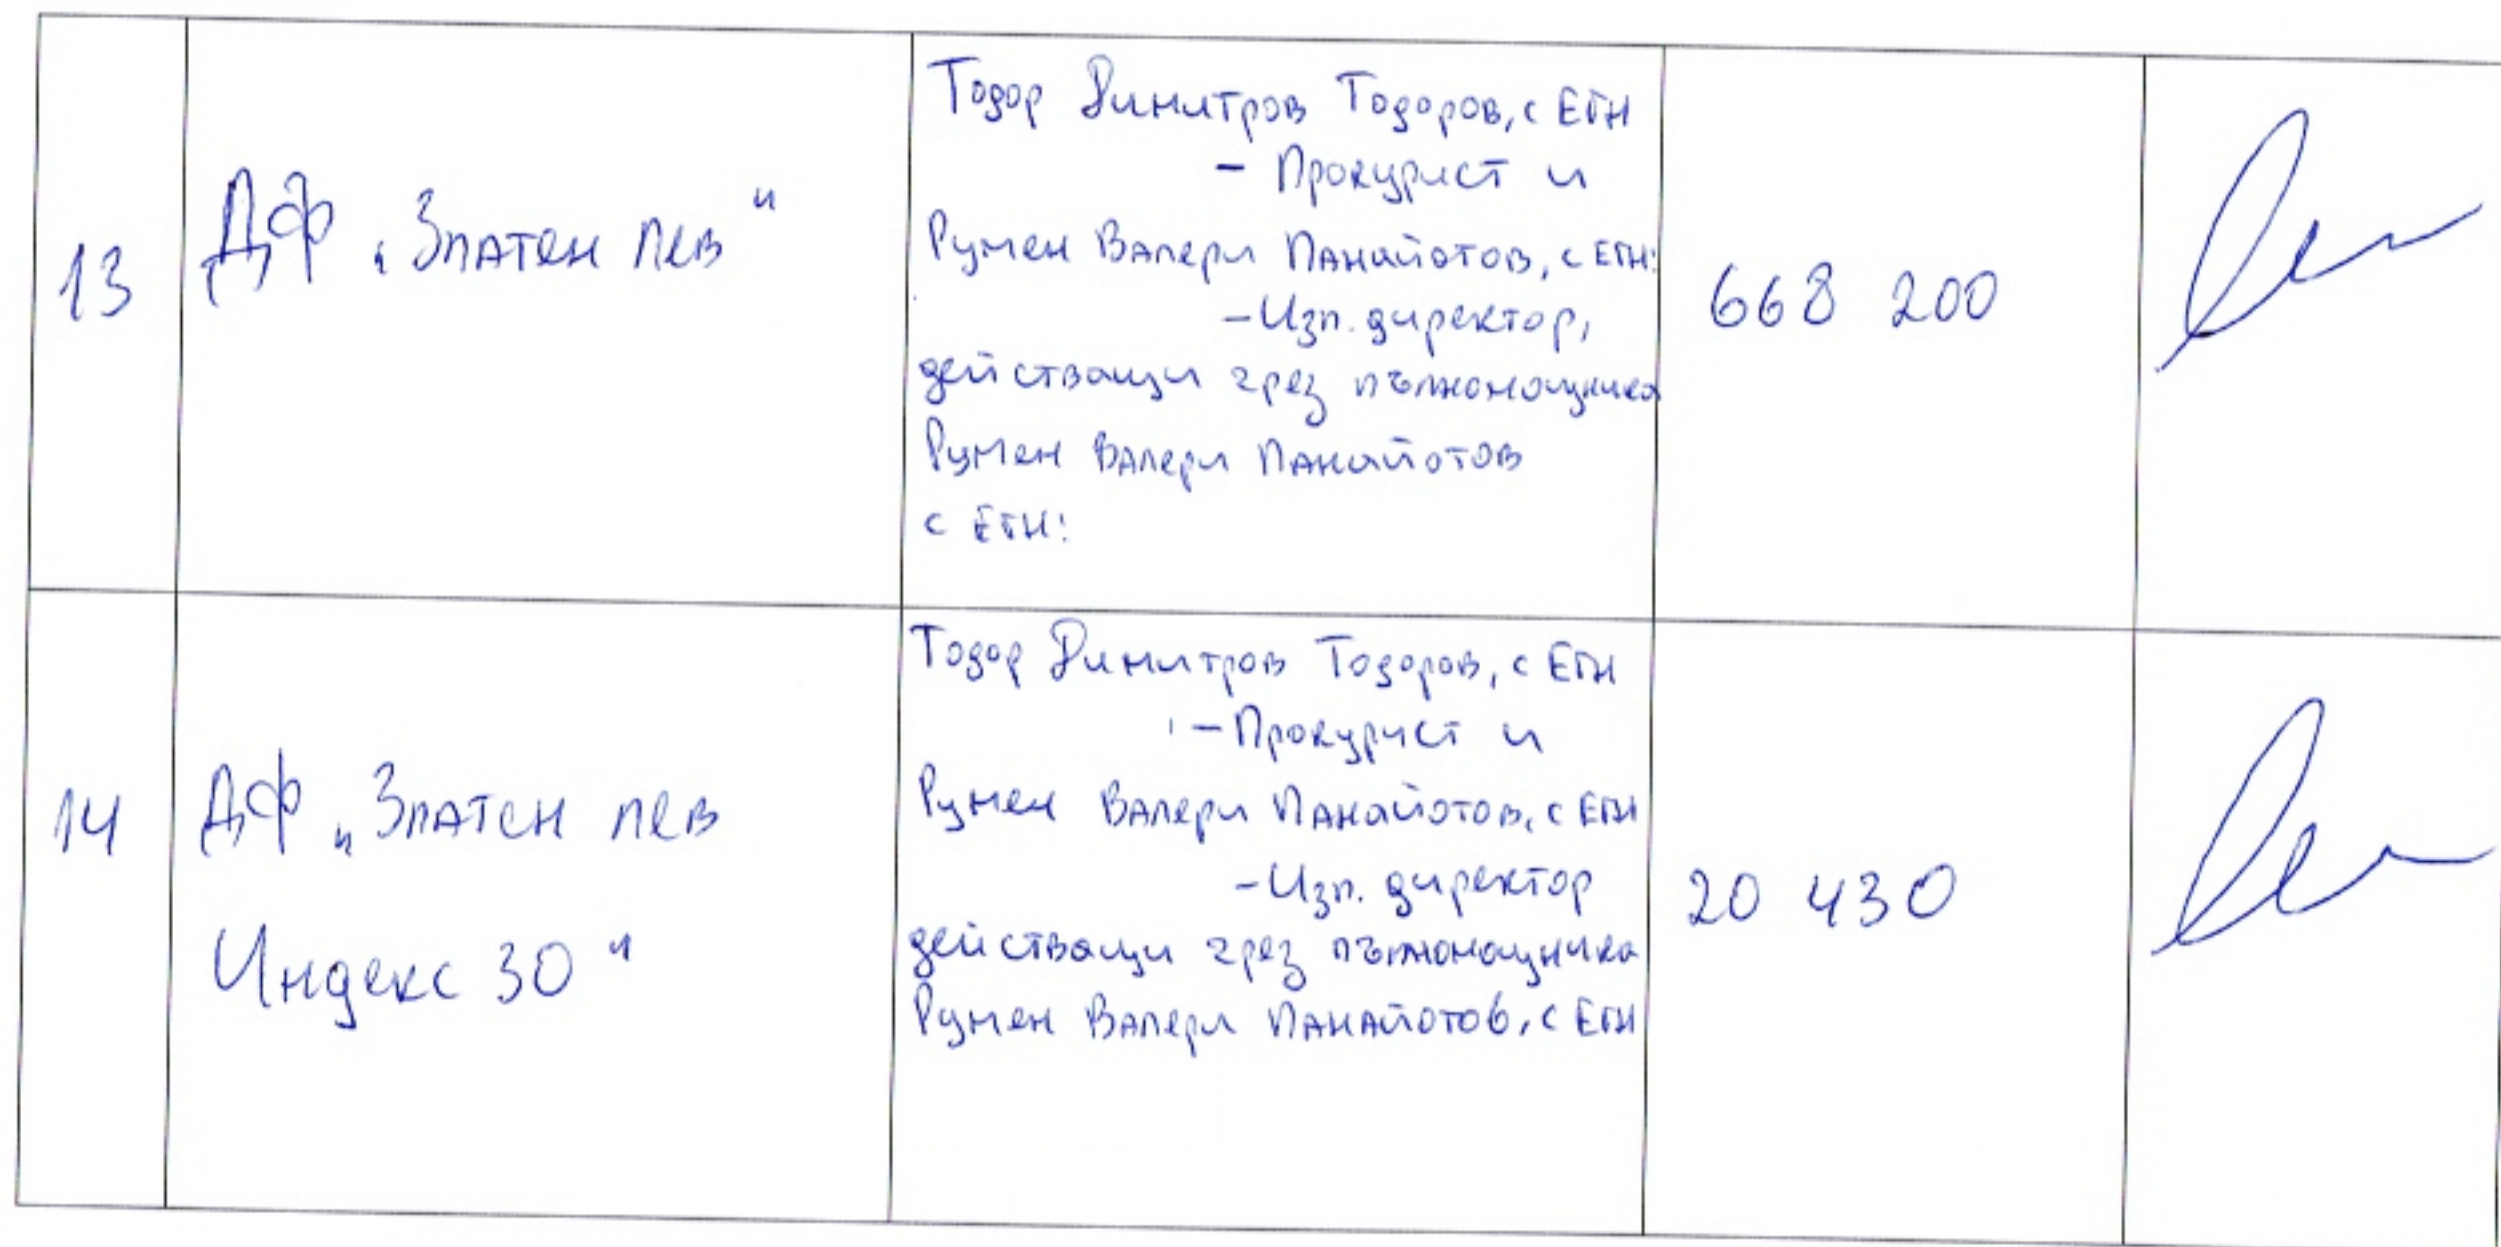 13
ДФ „Златен лев"
Тодор Димитров Тодоров, с ЕГН
- Прокурист и
Румен Валери Панайотов, с ЕГН:
- Изп. директор,
действащи чрез пълномощника
Румен Валери Панайотов
с ЕГН:
668 200
14
ДФ „Златен лев
Индекс 30"
Тодор Димитров Тодоров, с ЕГН
- Прокурист и
Румен Валери Панайотов, с ЕГН
- Изп. директор
действащи чрез пълномощника
Румен Валери Панайотов, с ЕГН
20 430